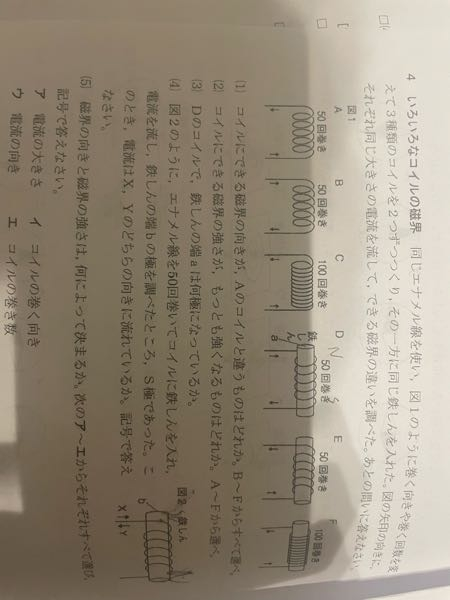 4 いろいろなコイルの磁界 同じエナメル線を使い，図1のように巻く向きや巻く回数を変
えて3種類のコイルを2つずつつくり，その一方に同じ鉄しんを入れた。図の矢印の向きに，
それぞれ同じ大きさの電流を流して，できる磁界の違いを調べた。あとの問いに答えなさい。
図1
A
50回巻き
B
50回巻き
C
100回巻き
D
50回巻き
鉄しん
a
N
S
E
50回巻き
F
100回巻き
(1) コイルにできる磁界の向きが，Aのコイルと違うものはどれか。B〜Fからすべて選べ。
(2) コイルにできる磁界の強さが，もっとも強くなるものはどれか。A〜Fから選べ。
(3) Dのコイルで，鉄しんの端aは何極になっているか。
(4) 図2のように，エナメル線を50回巻いてコイルに鉄しんを入れ，
電流を流し，鉄しんの端bの極を調べたところ，S極であった。こ
のとき，電流はX，Yのどちらの向きに流れているか。記号で答え
なさい。
図2
鉄しん
b
X
Y
(5) 磁界の向きと磁界の強さは，何によって決まるか。次のア〜エからそれぞれすべて選び，
記号で答えなさい。
ア 電流の大きさ イ コイルの巻く向き
ウ 電流の向き エ コイルの巻き数